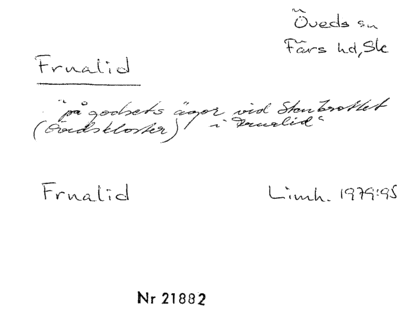 Öveds sn
Färs hd, Sk
Frualid
"på godsets ägor vid Stenbrottet
(Övedskloster) i Frualid"
Frualid Limh. 1979:95
Nr 21882